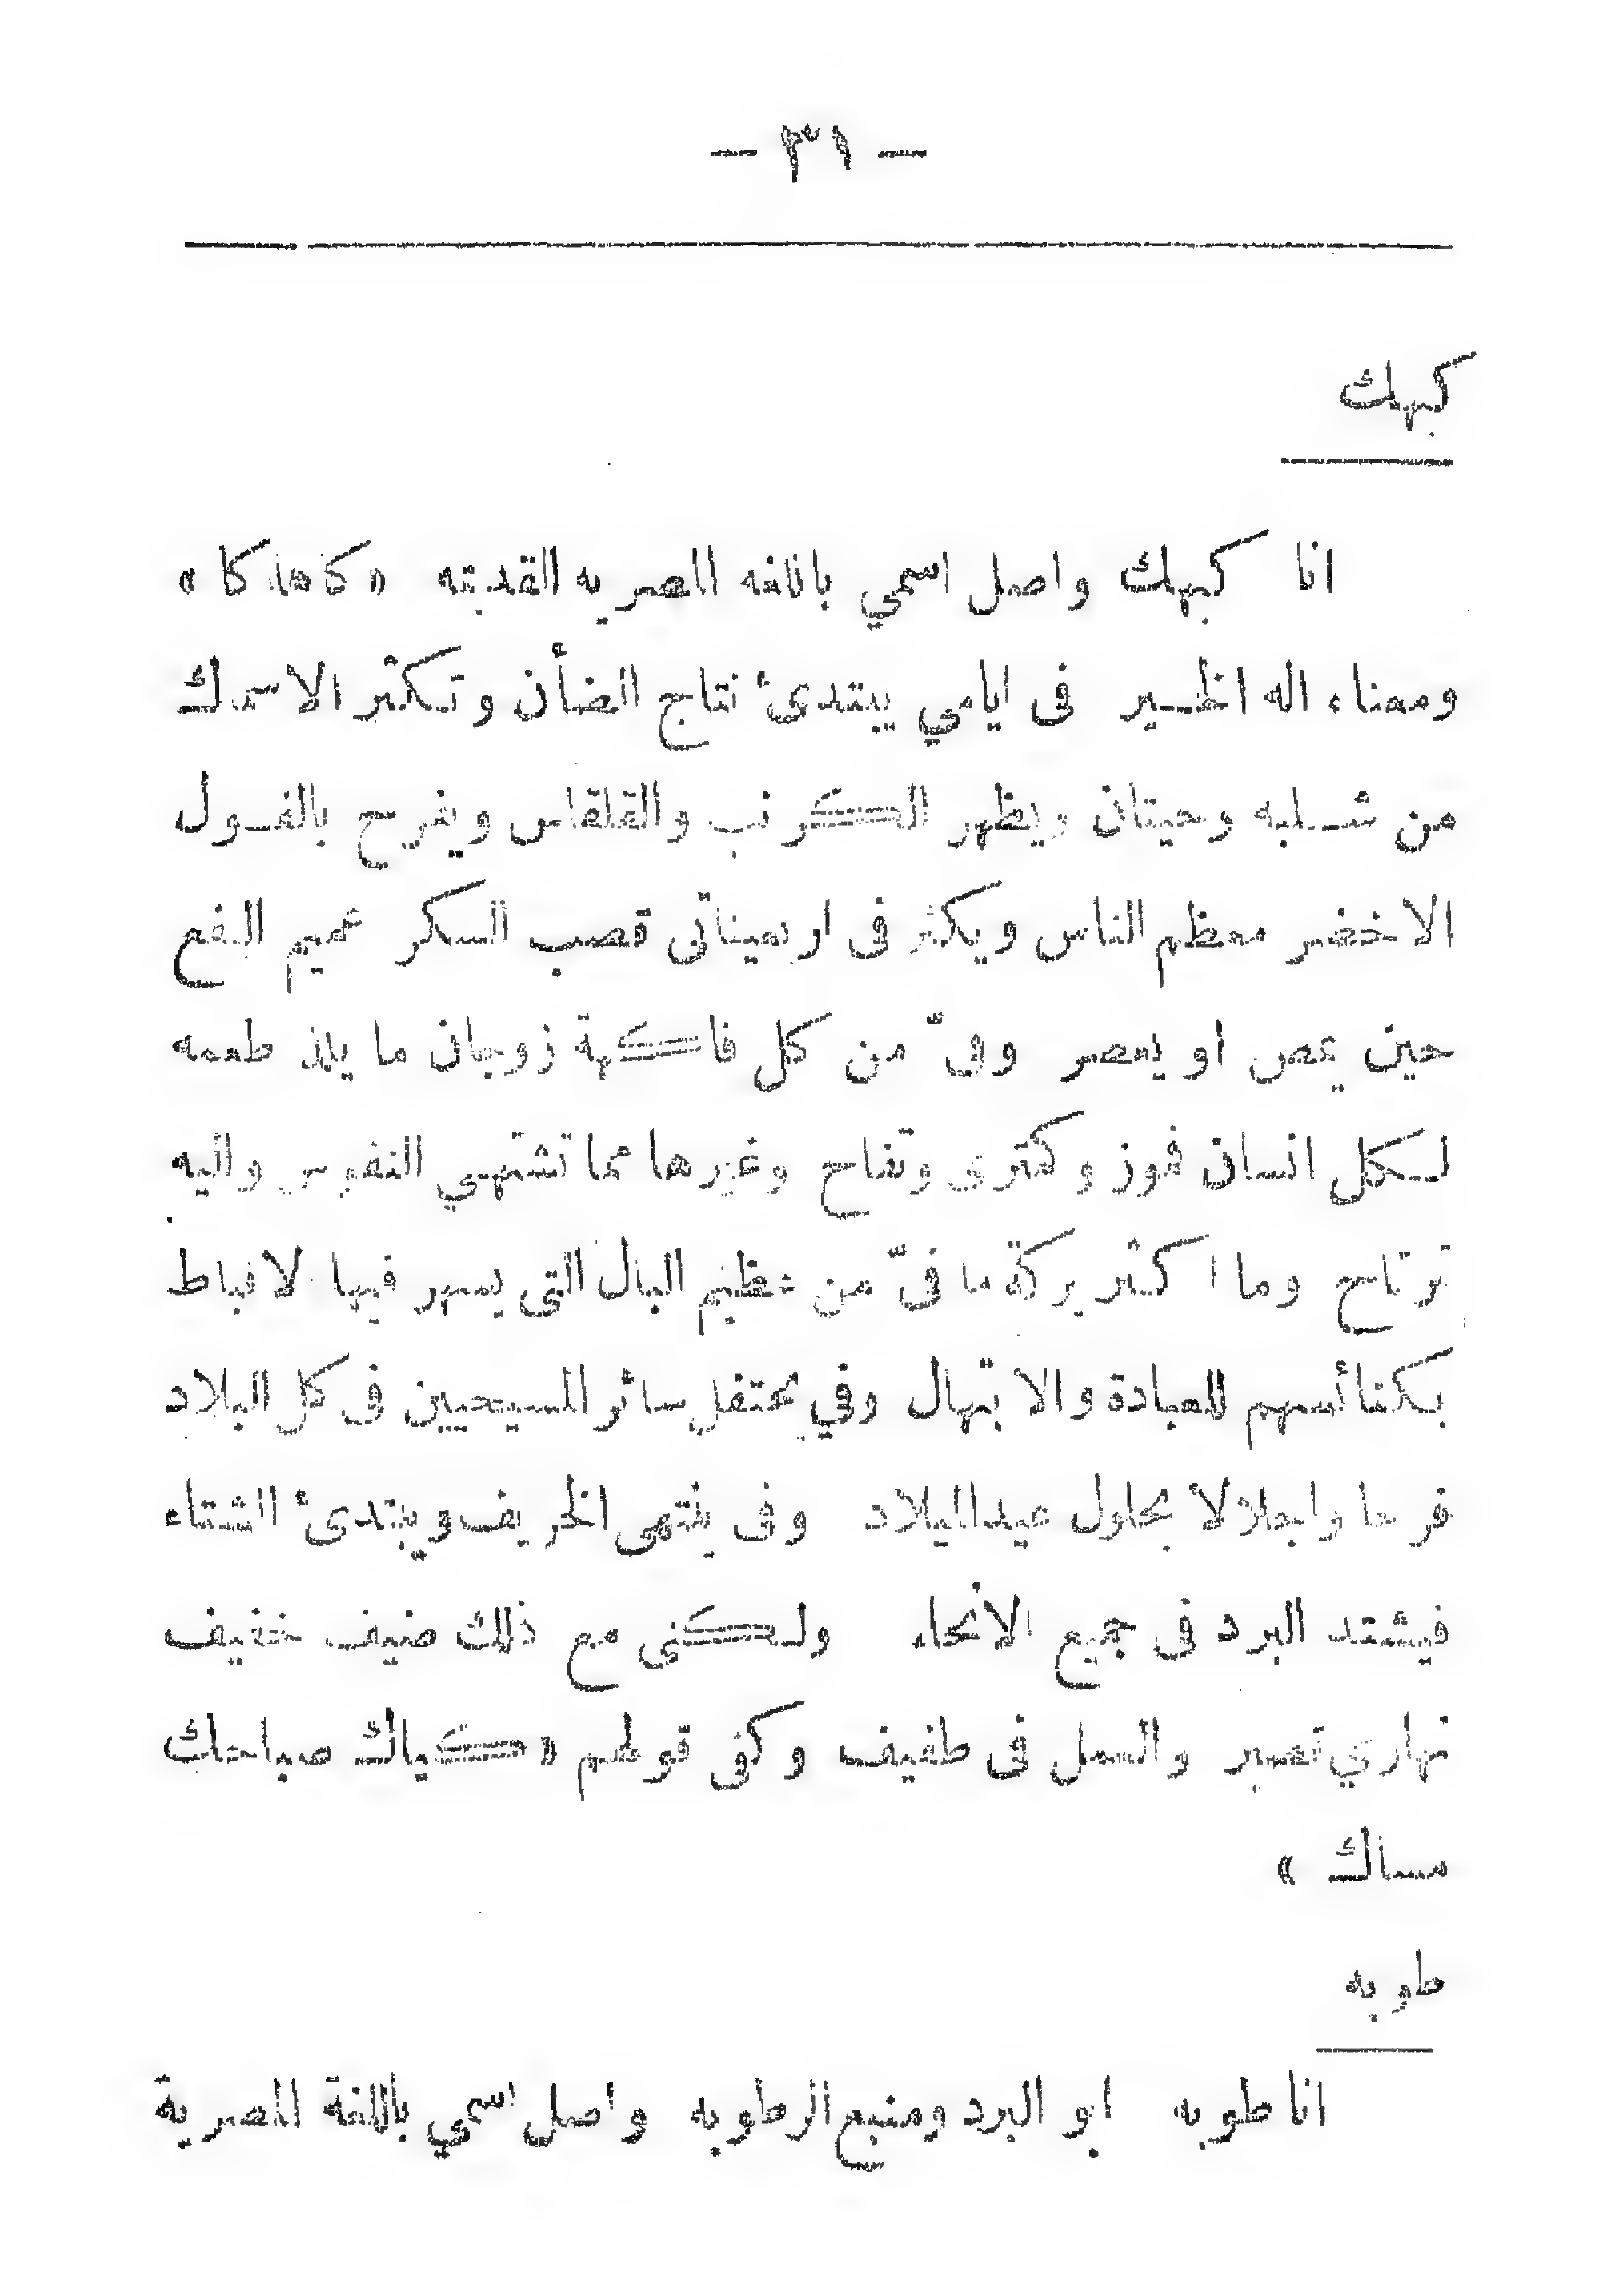 — ٣١ —
كيهك
انا كيهك واصل اسمي باللغه المصريه القديمه « كاهاكا »
ومعناه اله الخير فى ايامي يبتدئ نتاج الضأن وتكثر الاسماك
من شلبه وحيتان ويظهر الكرنب والقلقاس ويفرح بالفول
الاخضر معظم الناس ويكثر فى اربعيناتى قصب السكر عميم النفع
حين يمص او يعصر وفىّ من كل فاكهة زوجان ما يلذ طعمه
لكل انسان فموز وكمثرى وتفاح وغيرها مما تشتهي النفوس واليه
ترتاح وما اكثر بركة ما فىّ من عظيم البال التى يسهر فيها الاقباط
بكنائسهم للعبادة والابتهال وفي يحتفل سائر المسيحيين فى كل البلاد
فرحا واجلالا بحلول عيد الميلاد وفى ينتهى الخريف ويبتدئ الشتاء
فيشتد البرد فى جميع الانحاء ولكنى مع ذلك ضيف خفيف
نهاري قصير والعمل فى طفيف وكفى قولهم « كياك صباحك
مساك »
طوبه
انا طوبه ابو البرد ومنبع الرطوبه واصل اسمي باللغة المصرية